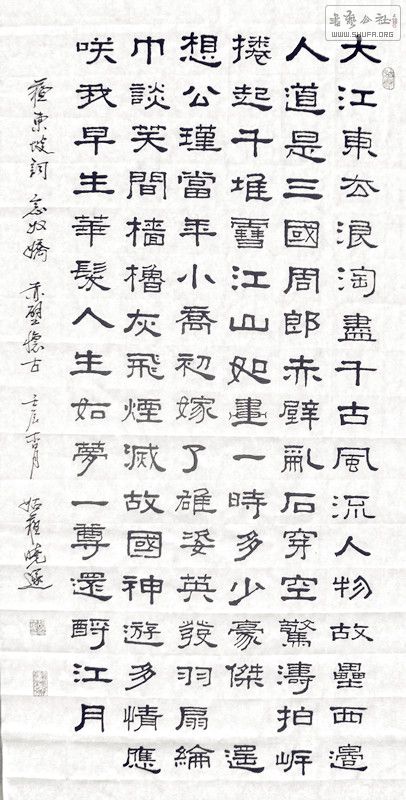 書藝公社
WWW.SHUFA.ORG
大江東去浪淘盡千古風流人物故壘西邊
人道是三國周郎赤壁亂石穿空驚濤拍岸
捲起千堆雪江山如畫一時多少豪傑遥
想公瑾當年小喬初嫁了雄姿英發羽扇綸
巾談笑間檣櫓灰飛煙滅故國神遊多情應
咲我早生華髮人生如夢一尊還酹江月
蘇東坡詞 念奴嬌 赤壁懷古 壬辰